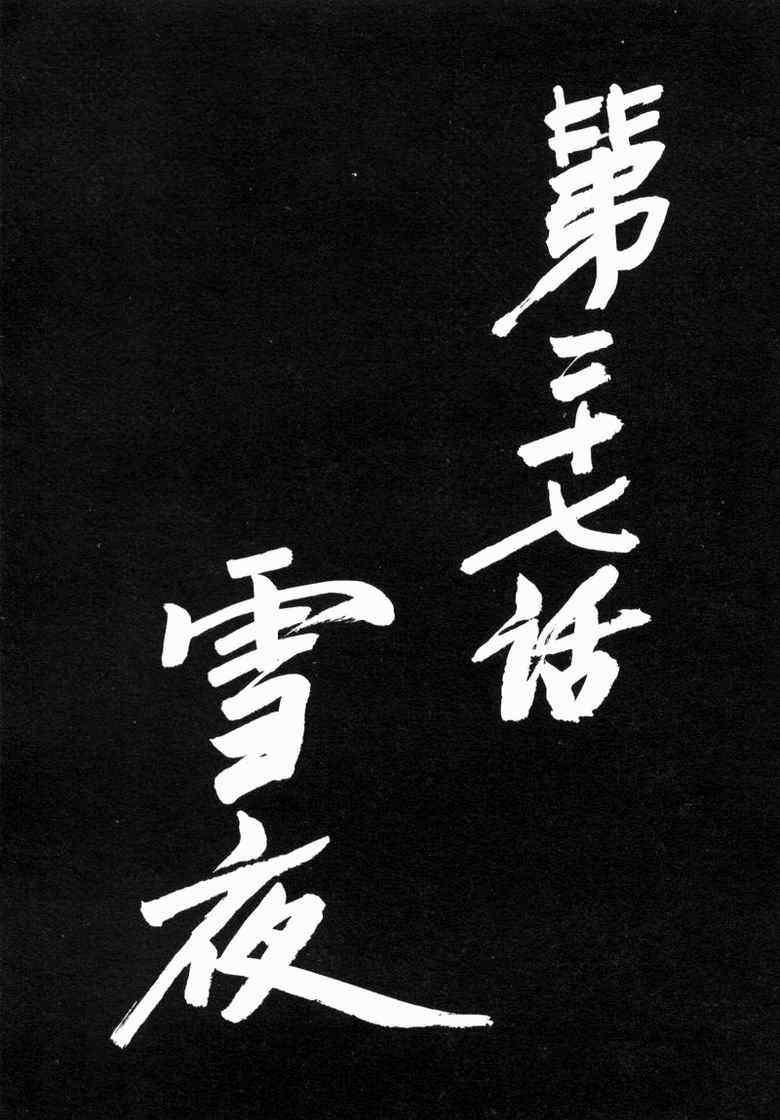 第二十七話
雪夜